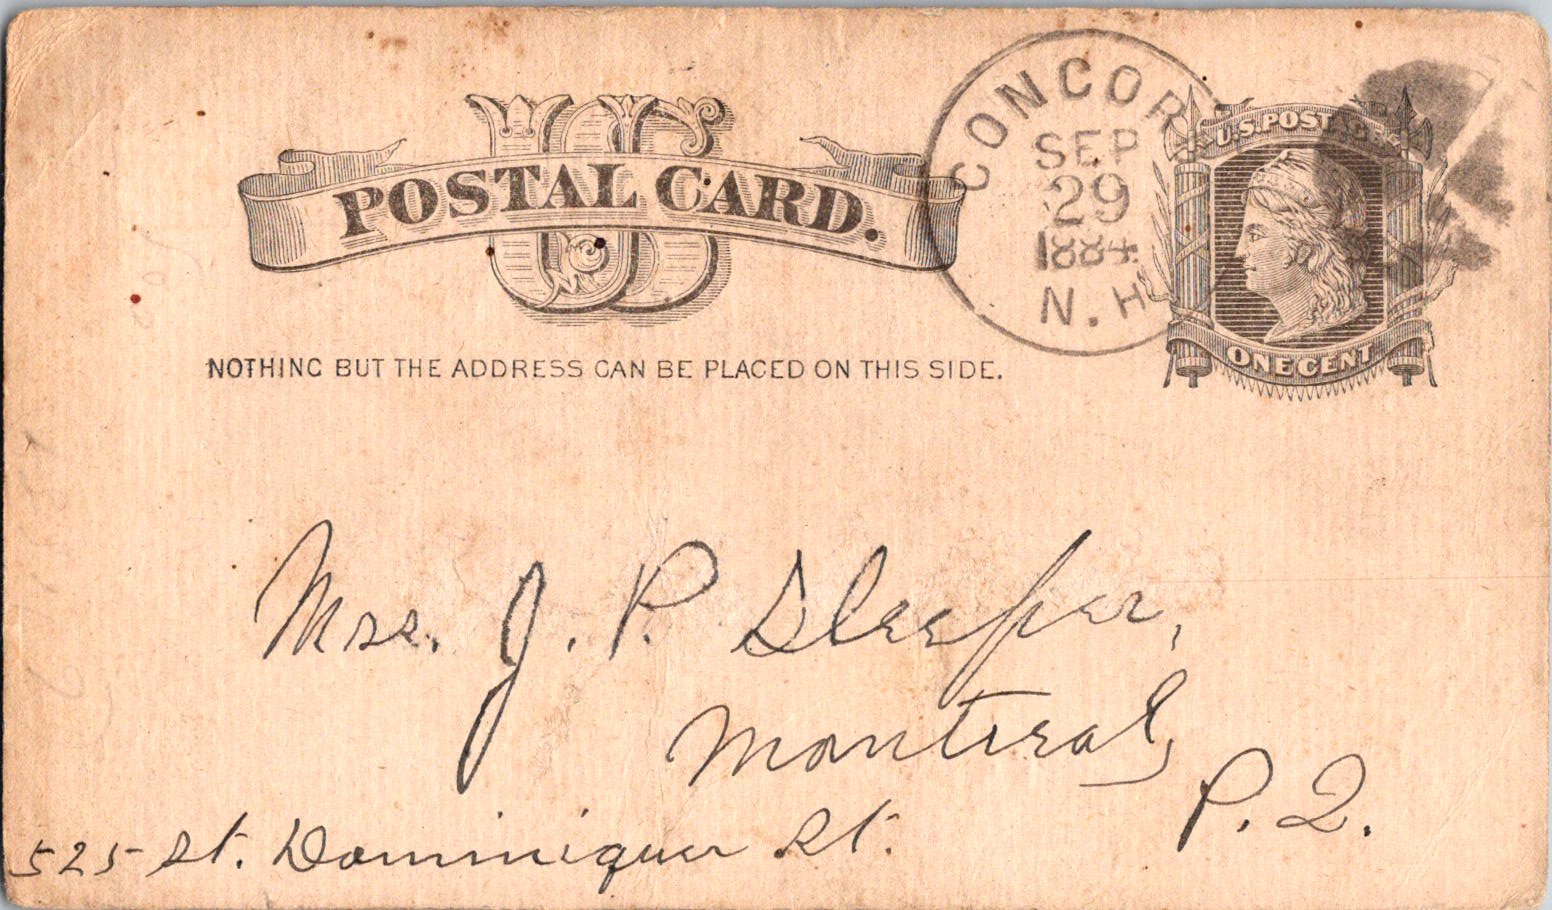 US
POSTAL CARD.
CONCORD
SEP
29
1884
N.H.
U.S. POSTAGE
ONE CENT
NOTHING BUT THE ADDRESS CAN BE PLACED ON THIS SIDE.
Mrs. J. P. Sleeper,
Montreal,
P. Q.
525 St. Dominique St.